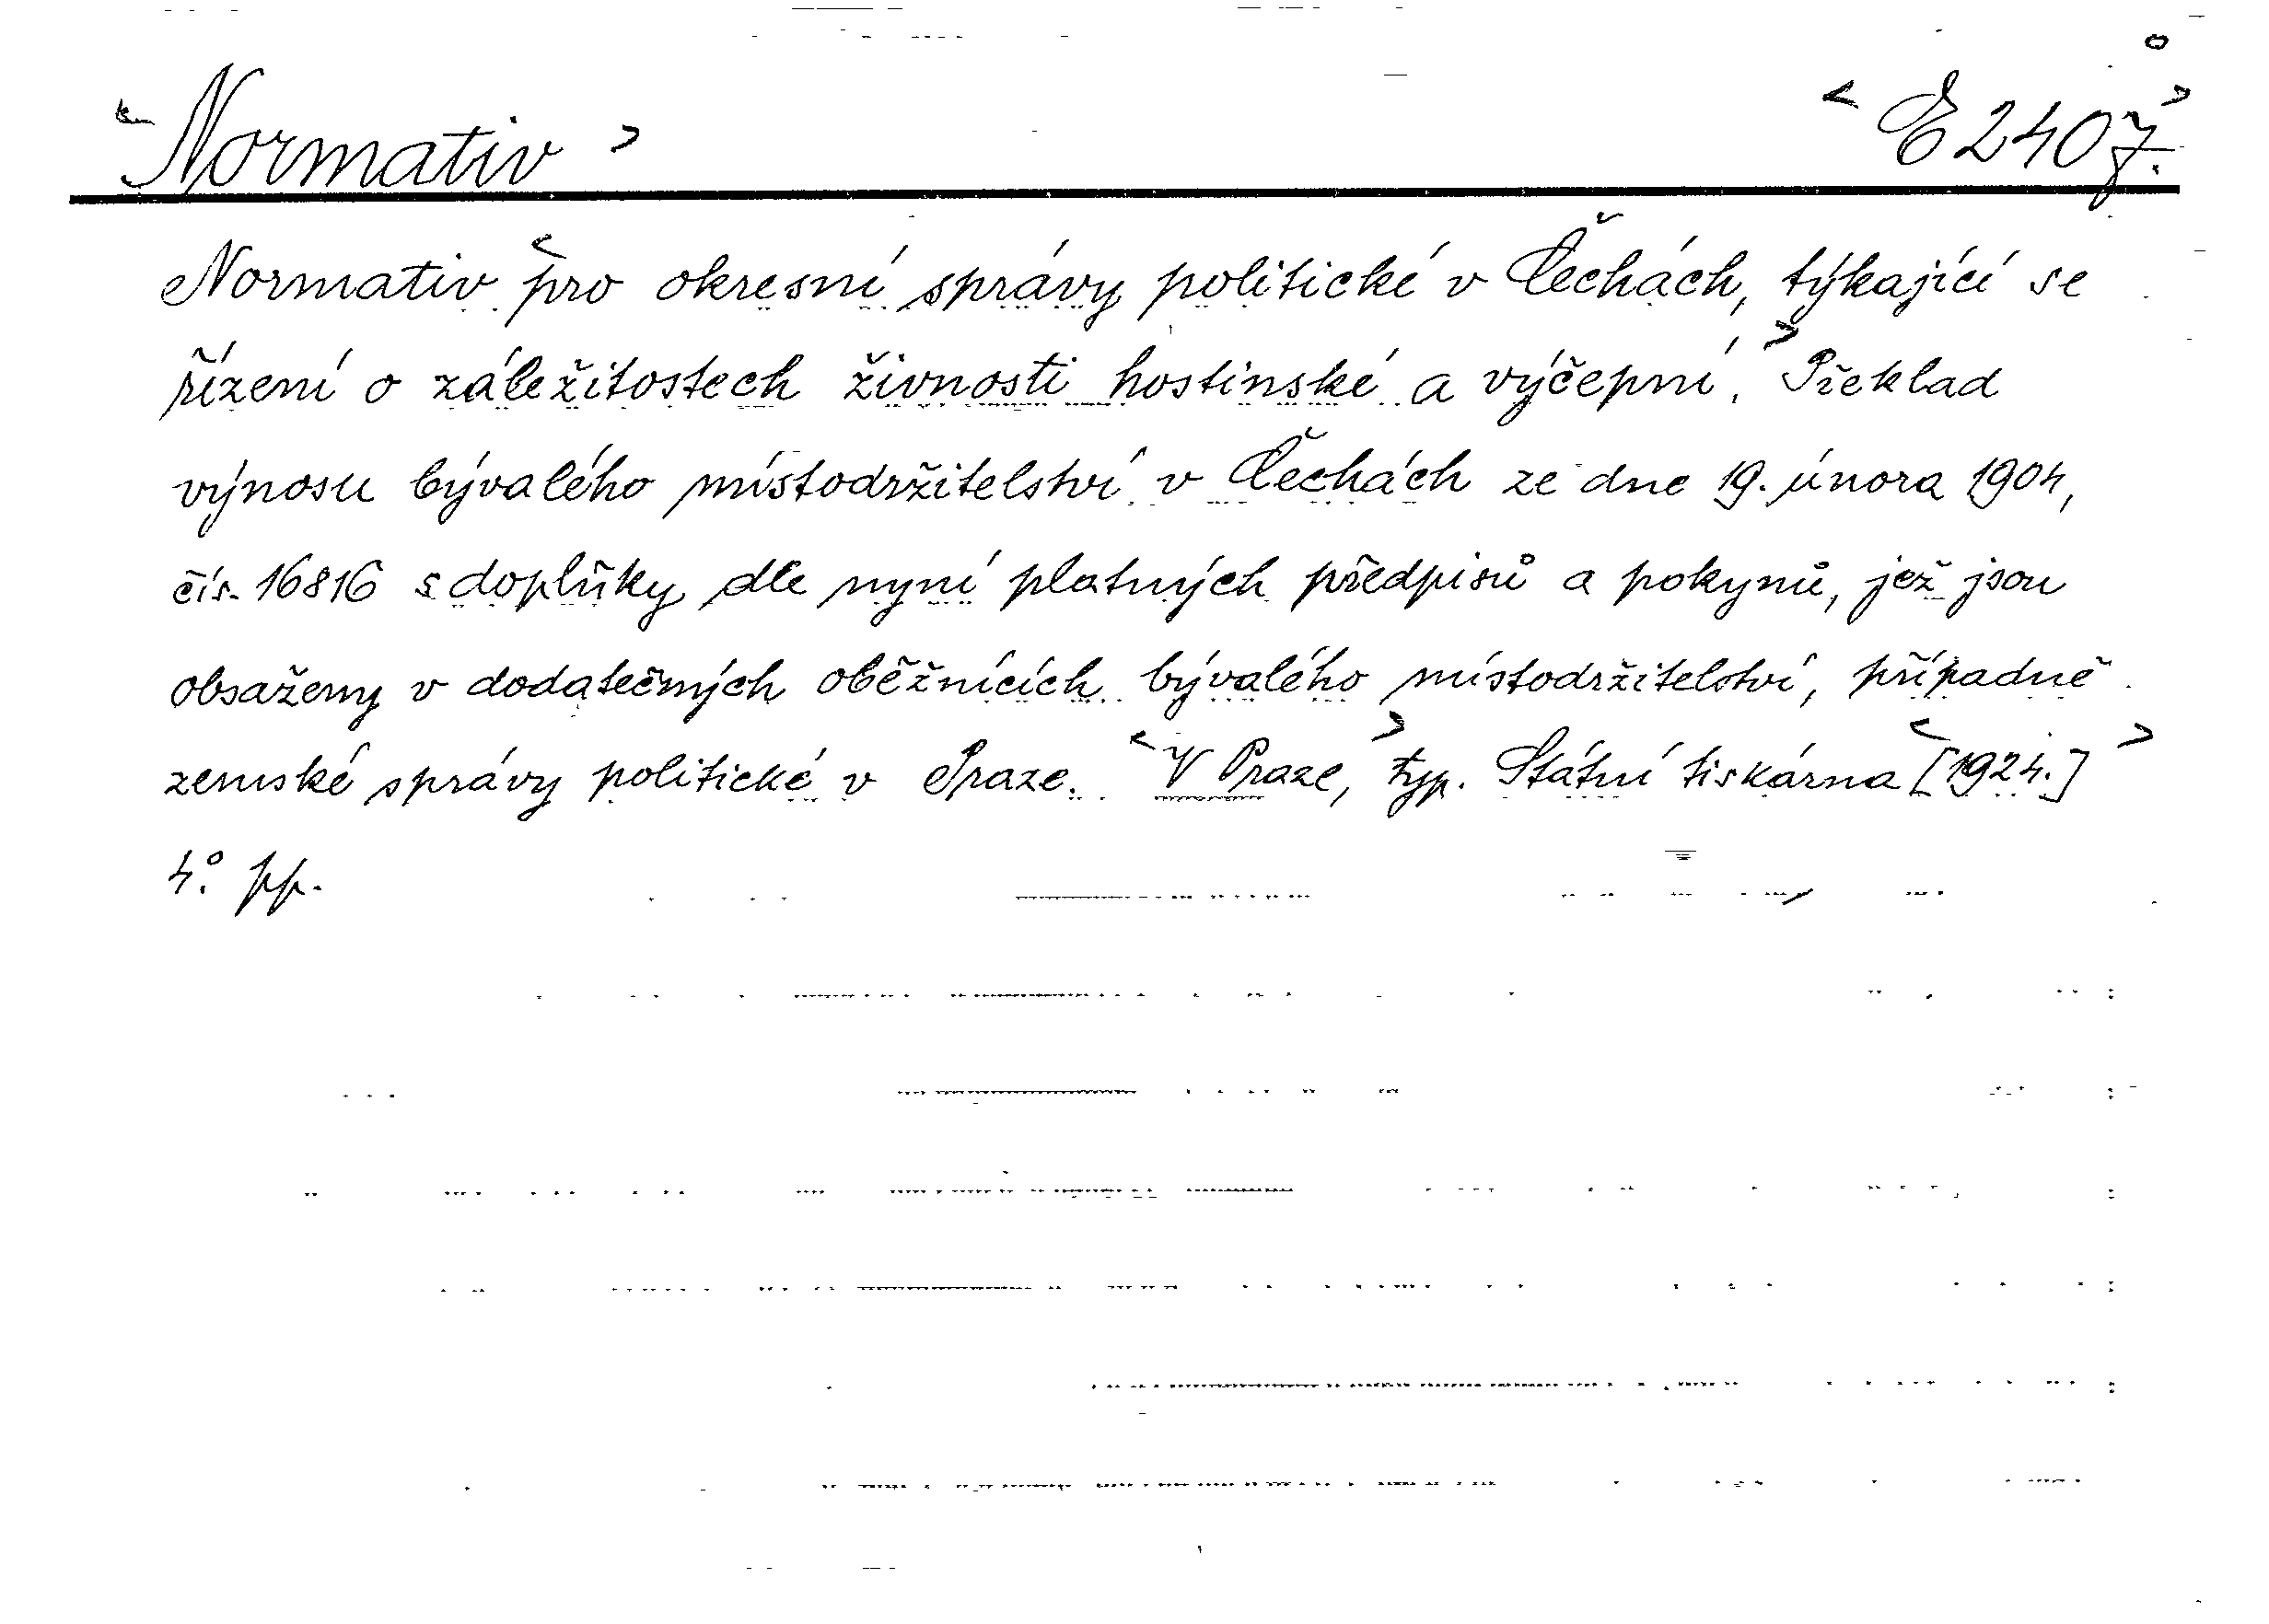 <Normativ> <E 2407.>
Normativ <pro okresní správy politické v Čechách, týkající se
řízení o záležitostech živnosti hostinské a výčepní.> Překlad
výnosu bývalého místodržitelství v Čechách ze dne 19. února 1904,
čís. 16816 s doplňky dle nyní platných předpisů a pokynů, jež jsou
obsaženy v dodatečných oběžnících bývalého místodržitelství, případně
zemské správy politické v Praze. <V Praze,> typ. Státní tiskárna <[1924.]>
4º. pp.